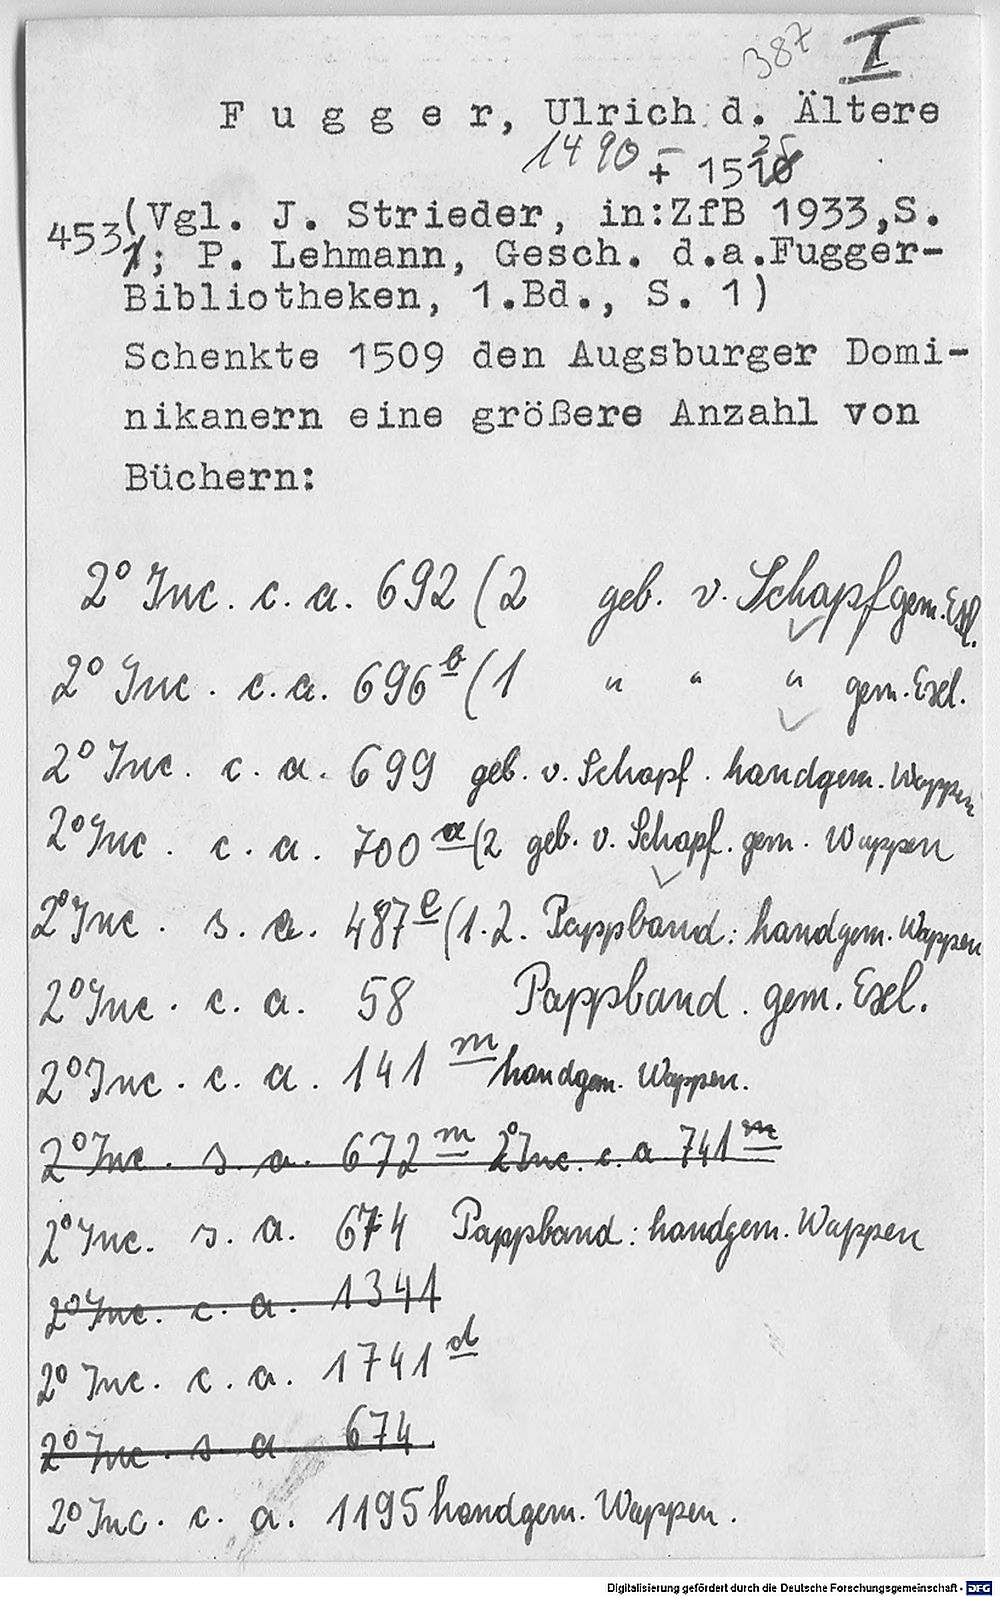 387 I
F u g g e r, Ulrich d. Ältere
1490 + 1525
(Vgl. J. Strieder, in:ZfB 1933,S.
453; P. Lehmann, Gesch. d.a.Fugger-
Bibliotheken, 1.Bd., S. 1)
Schenkte 1509 den Augsburger Domi-
nikanern eine größere Anzahl von
Büchern:
2° Inc. c. a. 692 (2 geb. v. Schapf gem. Exl.
2° Inc. c. a. 696 b (1 " " " gem. Exl.
2° Inc. c. a. 699 geb. v. Schapf. handgem. Wappen
2° Inc. c. a. 700 a (2 geb. v. Schapf. gem. Wappen
2° Inc. s. a. 487 e (1.2. Pappband: handgem. Wappen
2° Inc. c. a. 58 Pappband. gem. Exl.
2° Inc. c. a. 141 m handgem. Wappen.
2° Inc. s. a. 672 m 2° Inc. c. a 741 m
2° Inc. s. a. 674 Pappband: handgem. Wappen
2° Inc. c. a. 1341
2° Inc. c. a. 1741 d
2° Inc. s. a 674
2° Inc. c. a. 1195 handgem. Wappen.
Digitalisierung gefördert durch die Deutsche Forschungsgemeinschaft - DFG